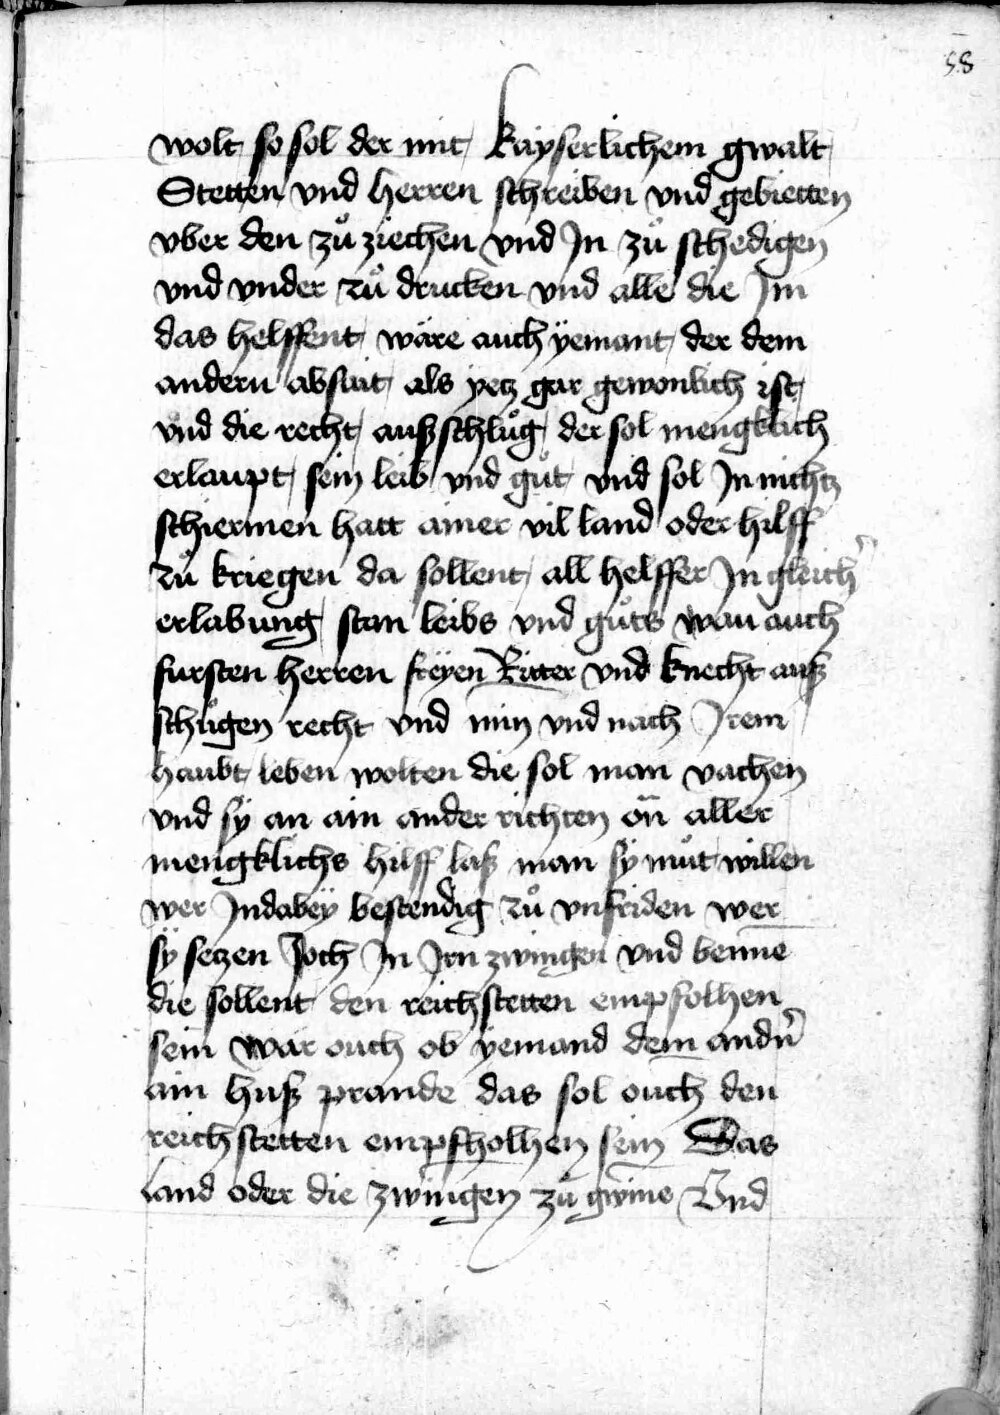 58
wolt so sol der mit kayserlichem gwalt
Stetten vnd herren schreiben vnd gebietten
vber den zů ziechen vnd Jn zů schedigen
vnd vnder zů drucken vnd alle die Jm
das helffent wäre auch ÿemant der dem
andern absait als yetz gar gewonlich ist
vnd die recht außschlůg der sol mengklich
erlaupt sein leib vnd gůt vnd sol Jn nichtz
schiermen hatt ainer vil land oder hilff
zů kriegen da sollent all helffer Jn gleich͛
erlabung stan leibs vnd gůts wan auch
fursten herren freÿen Ritter vnd knecht auß
schůgen recht vnd min vnd nach Jrem
haubt leben wolten die sol man vachen
vnd sÿ an ain ander richten on̄ aller
mengklichs hilff laß man sy můt willen
wer Jndabeÿ bestendig zů vnfriden wer
sÿ setzen Joch Jn Jrn zwingen vnd benne
die sollent den reichstetten empfolhen
sein wär ouch ob yemand dem andn͛
ain huß prande das sol ouch den
reichstetten empfholhen sein Das
land oder die zwingen zů gwine Vnd